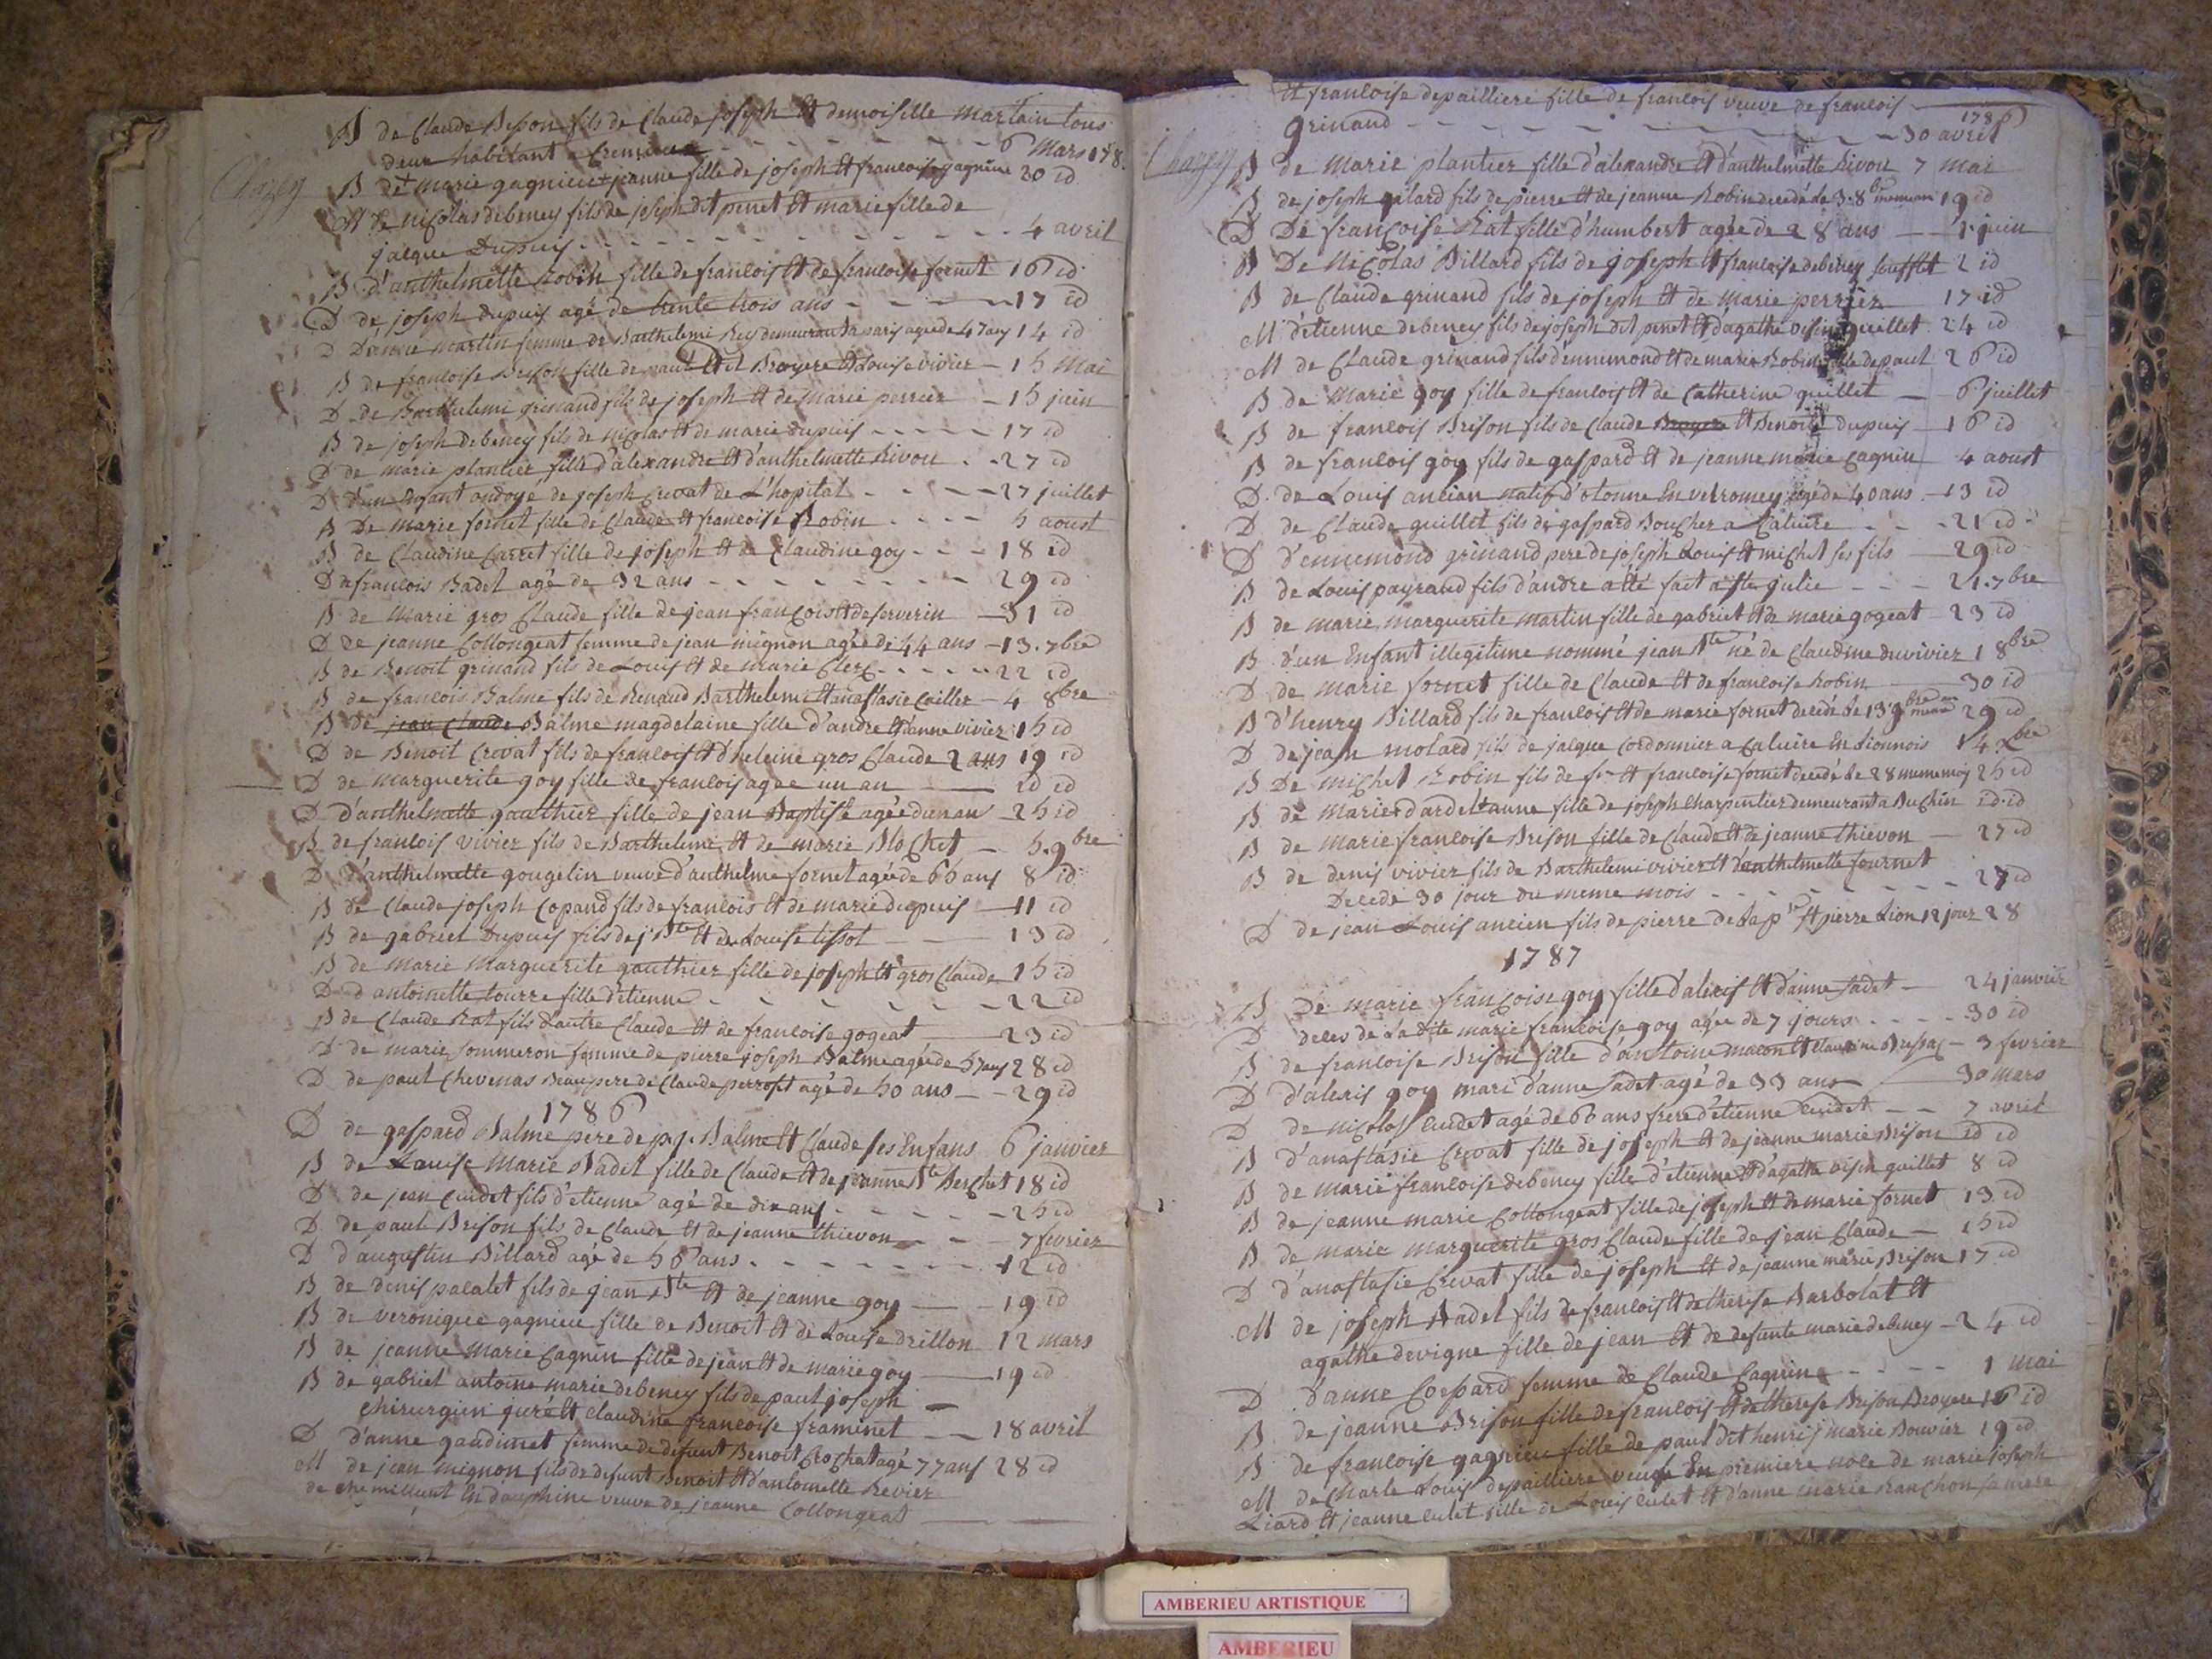 B de Claude Besson fils de Claude joseph et demoiselle martain tous
deux habitant a Cremieux 6 Mars 178
Chazey
B de + marie gagnieu + jeanne fille de joseph et francoise gagnieu 20 id
M de nicolas debeney fils de joseph dit penet et marie fille de
jaque Dupuis 4 avril
B d'anthelmette Robin fille de francois et de francoise fornet 16 id
D de joseph dupuis agé de trente trois ans 17 id
D Dannie martin femme de Barthelemi Rey demeurant a paris agée de 47 ans 14 id
B de francoise Brison fille de paul dit Broyere et Louise vivier 15 Mai
D de Barthelemi grinand fils de joseph et de marie perrier 15 juin
B de joseph debeney fils de nicolas et de marie dupuis 17 id
D de marie plantier fille d'alexandre et d'anthelmette Rivon 27 id
D d'un Enfant andoye de joseph Crevat de L'hopital 27 juillet
B De marie fornet fille de Claude et francoise Robin 5 aoust
B de Claudine Carret fille de joseph et de Claudine goy 18 id
D de francois Badet agé de 32 ans 29 id
B de Marie gros Claude fille de jean francois et de serverin 31 id
D De jeanne Collongeat femme de jean mignon agée de 44 ans 13. 7bre
B de Benoit grinand fils de Louis et de marie Clerc 22 id
B de francois Balme fils de Renaud Barthelemi et anastasie Cailler 4 8bre
B de jean Claude Balme magdelaine fille d'andre et d'anne vivier 15 id
D de Benoit Crevat fils de francois et d'heleine gros Claude 2 ans 19 id
D de marguerite goy fille de francois agee un an id id
D D'anthelmette gauthier fille de jean Baptiste agée d'un an 25 id
B de francois vivier fils de Barthelemi et de marie Blochet 5. 9bre
D d'anthelmette gougelin veuve d'anthelme fornet agée de 66 ans 8 id
B de Claude joseph Copand fils de francois et de marie dupuis 11 id
B de gabriel Dupuis fils de j Bte et de Louise tissot 13 id
B de marie Marguerite gauthier fille de joseph et gros Claude 15 id
D d antoinette tourre fille d'etienne 22 id
B de Claude Rat fils d'autre Claude et de francoise gogeat 23 id
D de marie sommeron femme de pierre joseph Balme agée de 57 ans 28 id
D de paul Chevenas Beaupere de Claude perroset agé de 50 ans 29 id
1786
D de gaspard Balme pere de p. j. Balme et Claude ses Enfans 6 janvier
B de Louise Marie Badet fille de Claude et de jeanne Bte Berchet 18 id
D de jean Cuidet fils d'etienne agé de dix ans 25 id
D de paul Brison fils de Claude et de jeanne thievon 7 fevrier
D d'augustin Billard agé de 56 ans 12 id
B de denis palalet fils de jean Bte et de jeanne goy 19 id
B de veronique gagnieu fille de Benoit et de Louise drillon 12 mars
B de jeanne marie Cagnin fille de jean et de marie goy 19 id
B de gabriel antoine marie debeney fils de paul joseph
Chirurgien juré et Claudine francoise framinet
D d'anne gaudimet femme de defunt Benoit Crochat agé 77 ans 18 avril
M de jean mignon fils de defunt Benoit et d'antoinette Revier 28 id
de Chemillunt En dauphine veuve de jeanne Collongeat
et francoise depailliere fille de francois veuve de francois
grinand 1786 30 avril
Chazey
B de Marie plantier fille d'alexandre et d'anthelmette Rivon 7 mai
B de joseph galard fils de pierre et de jeanne Robin decedé le 3. 8bre 19 id
D De francoise Rat fille d'humbert agée de 28 ans 1. juin
B De Nicolas Billard fils de joseph et francoise debeney soufflet 2 id
B de Claude grinand fils de joseph et de marie perrier 17 id
M d'etienne debeney fils de joseph dit penet et d'agathe visin guillet 24 id
M de Claude grinand fils d'ennemond et de marie Robin fille de paul 26 id
B de Marie goy fille de francois et de Catherine guillet 6 juillet
B de francois Brison fils de Claude Broyere et Benoite dupuis 16 id
B de francois goy fils de gaspard et de jeanne marie Cagnin 4 aoust
D de Louis ancian natif d'otonne En velromey agé de 40 ans 13 id
D de Claude guillet fils de gaspard Boucher a Caluire 21 id
D d'ennemond grinand pere de joseph Louis et michel ses fils 29 id
B de Louis payrand fils d'andre a eté fait a ste julie 21. 7bre
B de marie marguerite martin fille de gabriel et de marie gogeat 23 id
B d'un Enfant illegitime nommé jean Bte né de Claudine duvivier 1 8bre
D de marie fornet fille de Claude et de francoise Robin 30 id
B d'henry Billard fils de francois et de marie fornet decede le 13 9bre 29 id
D de jean molard fils de jaque Cordonnier a Caluire En Lionnois 14 Xbre
B De michel Robin fils de fr et francoise fornet decedé le 28 meme mois 25 id
B de Marie + dardel + anne fille de joseph Charpentier demeurant a Buchin id. id
B de marie francoise Brison fille de Claude et de jeanne thievon 27 id
B de denis vivier fils de Barthelemi vivier et d'anthelmette fournet
Decede 30 jour du meme mois 27 id
D de jean Louis ancien fils de pierre de La p St pierre Lion 12 jour 28
1787
B De marie francoise goy fille d'alexis et d'anne Sadet 24 janvier
D deces de La dite marie francoise goy agée de 7 jours 30 id
B de francoise Brison fille d'antoine macon et Claudine Bressaz 3 fevrier
D d'alexis goy mari d'anne Sadet agé de 33 ans 30 mars
D de nicolas Cuidet agé de 60 ans frere d'etienne Cuidet 7 avril
B d'anastasie Crevat fille de joseph et de jeanne marie Brison id id
B de marie francoise debeney fille d'etienne et d'agathe visin guillet 8 id
B de jeanne marie Collongeat fille de joseph et de marie fornet 13 id
B de marie marguerite gros Claude fille de jean Claude 15 id
D d'anastasie Crevat fille de joseph et de jeanne marie Brison 17 id
M de joseph Badet fils de francois et de therese Barbolat et
agathe devigne fille de jean et de defunte marie debeney 24 id
D d'anne Coepard femme de Claude Cagnin 1 mai
B de jeanne Brison fille de francois et de therese Brison Broyere 16 id
B de francoise gagnieu fille de paul dit henri j marie Bouvier 19 id
M de Charle Louis depailliere veuf En premiere noce de marie joseph
Liard et jeanne culet fille de Louis culet et d'anne marie Ranchon sa mere
AMBERIEU ARTISTIQUE
AMBERIEU